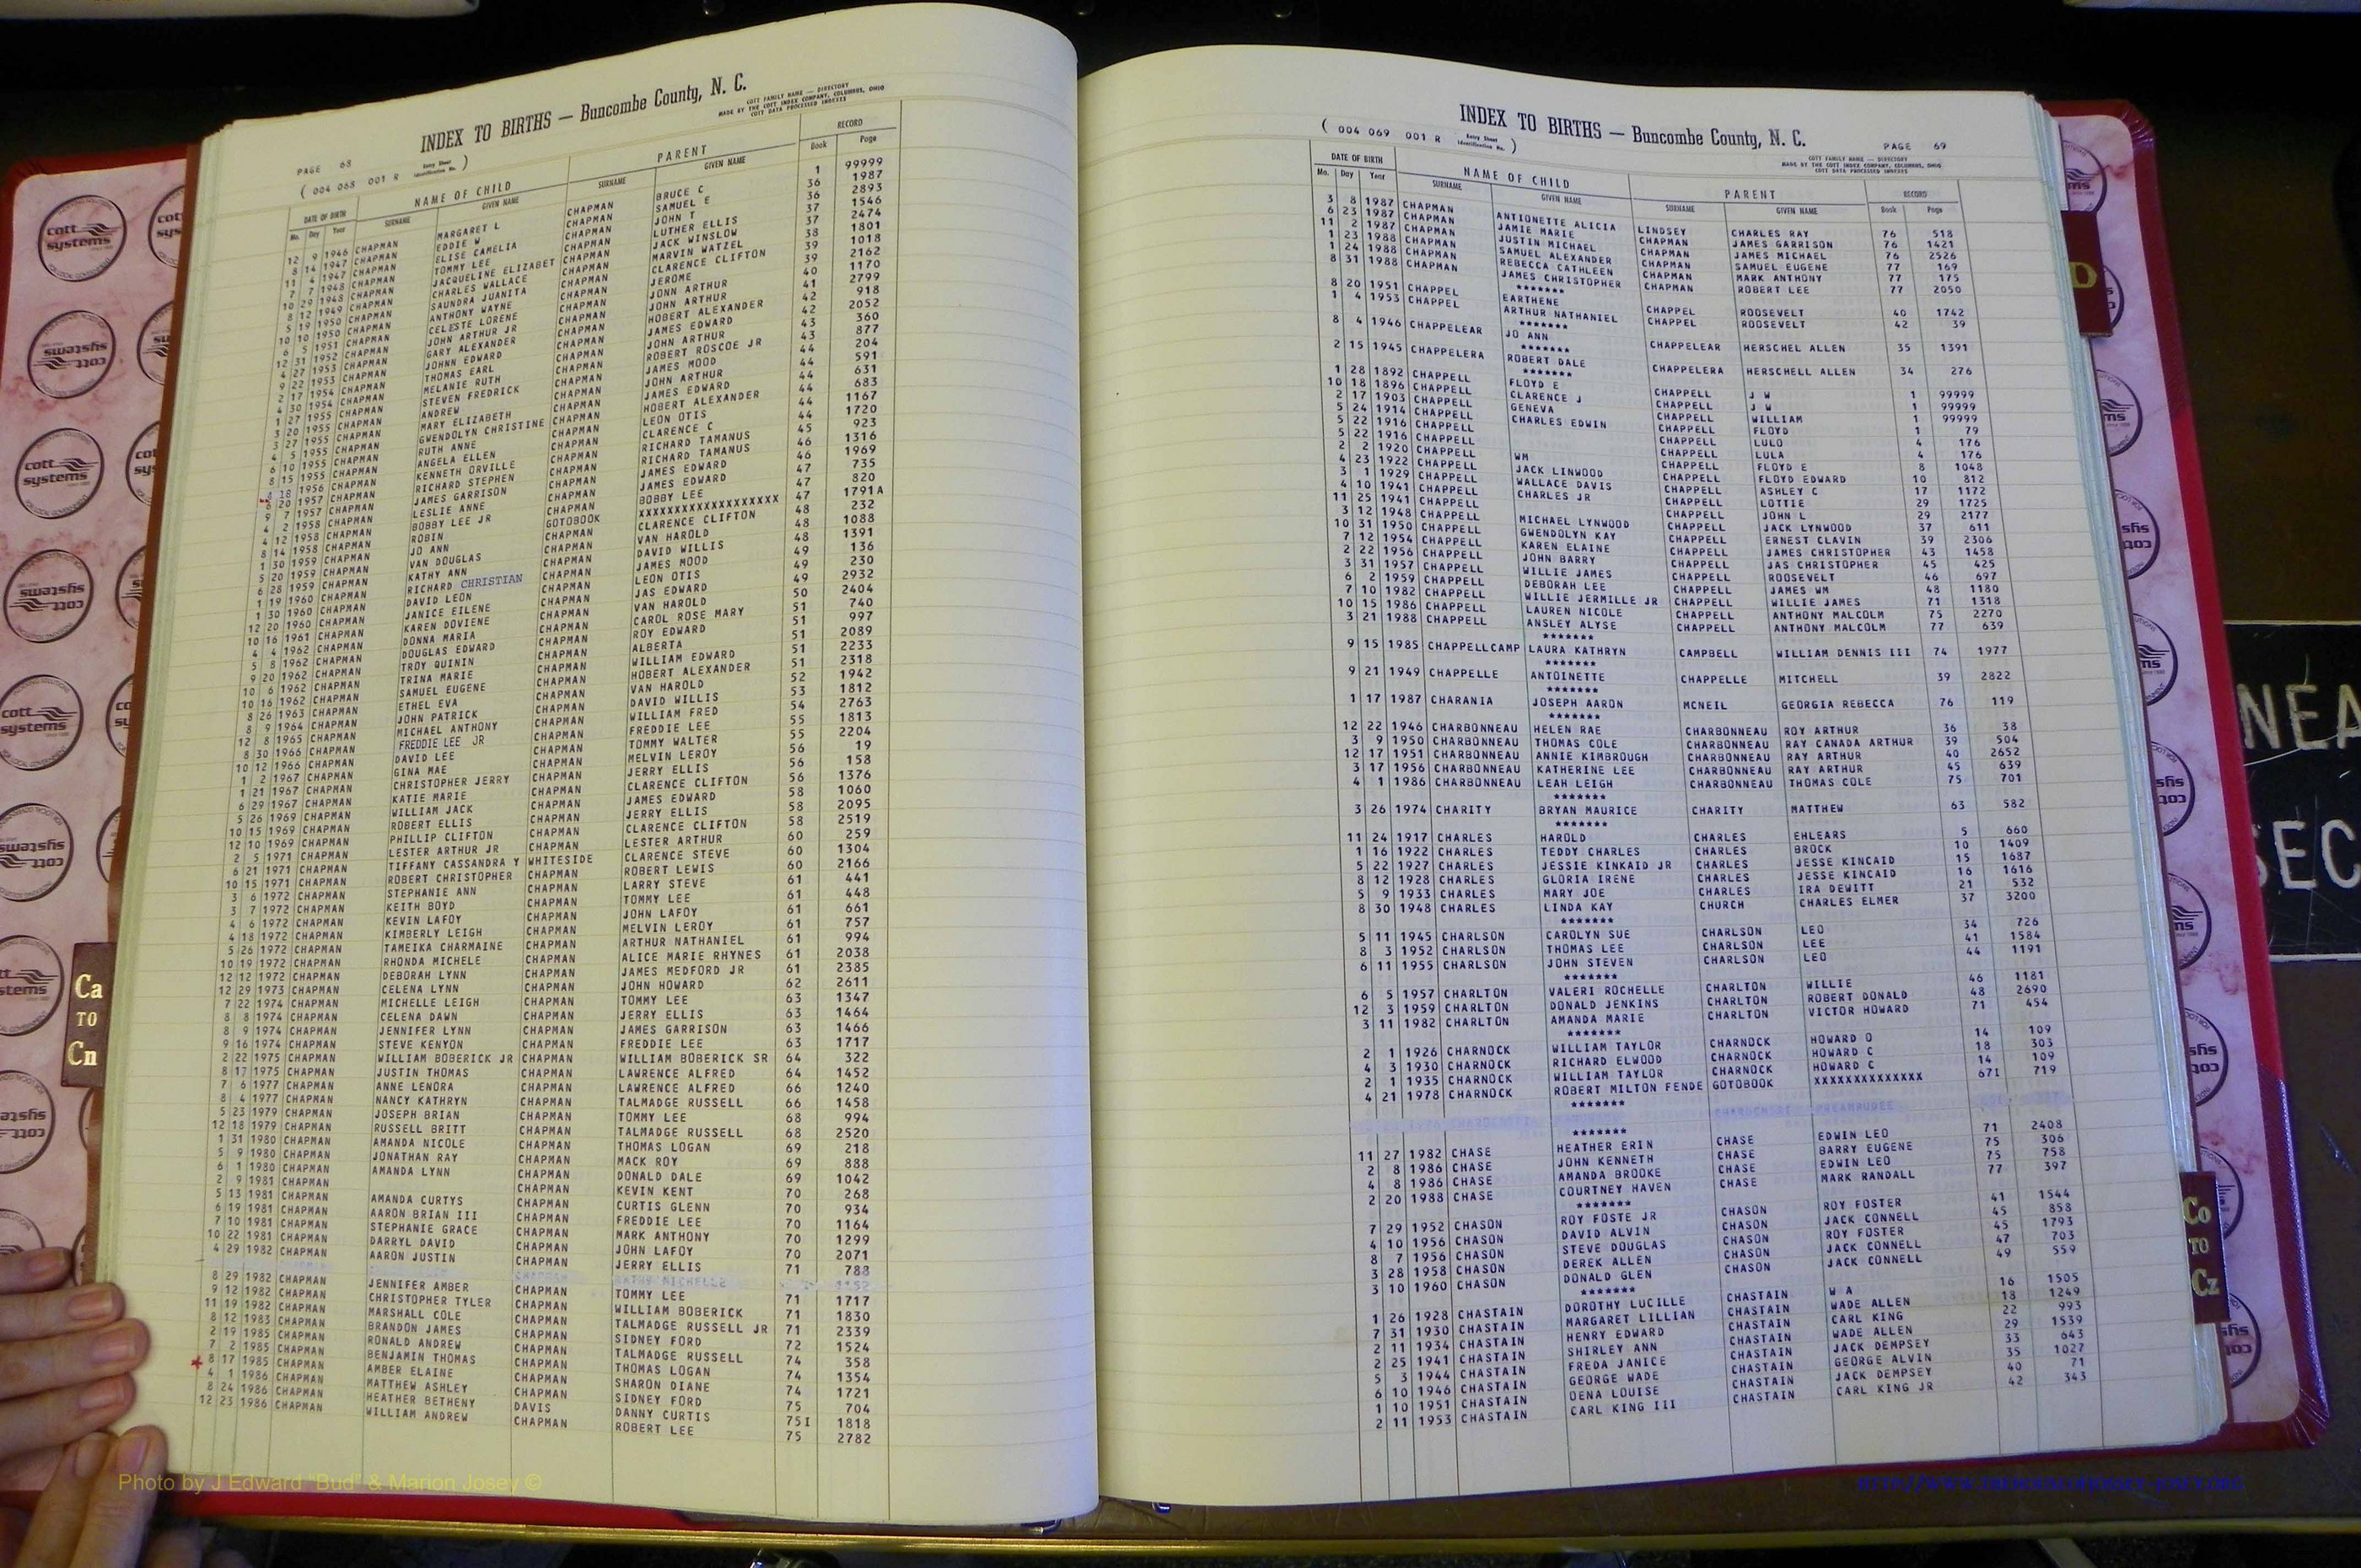 INDEX TO BIRTHS — Buncombe County, N. C.
COTT FAMILY NAME — DIRECTORY
MADE BY THE COTT INDEX COMPANY, COLUMBUS, OHIO
COTT DATA PROCESSED INDEXES
PAGE 68
( 004 068 001 R Entry Sheet Identification No. )
DATE OF BIRTH NAME OF CHILD PARENT RECORD
Mo. Day Year SURNAME GIVEN NAME SURNAME GIVEN NAME Book Page
12 9 1946 CHAPMAN MARGARET L CHAPMAN BRUCE C 1 99999
8 14 1947 CHAPMAN EDDIE W CHAPMAN SAMUEL E 36 1987
11 4 1947 CHAPMAN ELISE CAMELIA CHAPMAN JOHN T 36 2893
7 7 1948 CHAPMAN TOMMY LEE CHAPMAN LUTHER ELLIS 37 1546
10 29 1948 CHAPMAN JACQUELINE ELIZABET CHAPMAN JACK WINSLOW 37 2474
8 12 1949 CHAPMAN CHARLES WALLACE CHAPMAN MARVIN WATZEL 38 1801
5 19 1950 CHAPMAN SAUNDRA JUANITA CHAPMAN CLARENCE CLIFTON 39 1018
10 10 1950 CHAPMAN ANTHONY WAYNE CHAPMAN JEROME 39 2162
6 5 1951 CHAPMAN CELESTE LORENE CHAPMAN JONN ARTHUR 40 1170
12 31 1952 CHAPMAN JOHN ARTHUR JR CHAPMAN JOHN ARTHUR 41 2799
4 27 1953 CHAPMAN GARY ALEXANDER CHAPMAN HOBERT ALEXANDER 42 918
9 22 1953 CHAPMAN JOHN EDWARD CHAPMAN JAMES EDWARD 42 2052
2 17 1954 CHAPMAN THOMAS EARL CHAPMAN JOHN ARTHUR 43 360
4 30 1954 CHAPMAN MELANIE RUTH CHAPMAN ROBERT ROSCOE JR 43 877
1 27 1955 CHAPMAN STEVEN FREDRICK CHAPMAN JAMES MOOD 44 204
3 20 1955 CHAPMAN ANDREW CHAPMAN JOHN ARTHUR 44 591
3 27 1955 CHAPMAN MARY ELIZABETH CHAPMAN JAMES EDWARD 44 631
4 5 1955 CHAPMAN GWENDOLYN CHRISTINE CHAPMAN HOBERT ALEXANDER 44 683
6 10 1955 CHAPMAN RUTH ANNE CHAPMAN LEON OTIS 44 1167
8 15 1955 CHAPMAN ANGELA ELLEN CHAPMAN CLARENCE C 44 1720
8 18 1956 CHAPMAN KENNETH ORVILLE CHAPMAN RICHARD TAMANUS 45 923
6 20 1957 CHAPMAN RICHARD STEPHEN CHAPMAN RICHARD TAMANUS 46 1316
9 7 1957 CHAPMAN JAMES GARRISON CHAPMAN JAMES EDWARD 46 1969
4 2 1958 CHAPMAN LESLIE ANNE CHAPMAN JAMES EDWARD 47 735
4 12 1958 CHAPMAN BOBBY LEE JR CHAPMAN BOBBY LEE 47 820
8 14 1958 CHAPMAN ROBIN GOTOBOOK XXXXXXXXXXXXXXXXX 47 1791A
1 30 1959 CHAPMAN JO ANN CHAPMAN CLARENCE CLIFTON 48 232
5 20 1959 CHAPMAN VAN DOUGLAS CHAPMAN VAN HAROLD 48 1088
6 28 1959 CHAPMAN KATHY ANN CHAPMAN DAVID WILLIS 48 1391
1 19 1960 CHAPMAN RICHARD CHRISTIAN CHAPMAN JAMES MOOD 49 136
1 30 1960 CHAPMAN DAVID LEON CHAPMAN LEON OTIS 49 230
12 20 1960 CHAPMAN JANICE EILENE CHAPMAN JAS EDWARD 49 2932
10 16 1961 CHAPMAN KAREN DOVIENE CHAPMAN VAN HAROLD 50 2404
4 4 1962 CHAPMAN DONNA MARIA CHAPMAN CAROL ROSE MARY 51 740
5 8 1962 CHAPMAN DOUGLAS EDWARD CHAPMAN ROY EDWARD 51 997
9 20 1962 CHAPMAN TROY QUININ CHAPMAN ALBERTA 51 2089
10 6 1962 CHAPMAN TRINA MARIE CHAPMAN WILLIAM EDWARD 51 2233
10 16 1962 CHAPMAN SAMUEL EUGENE CHAPMAN HOBERT ALEXANDER 51 2318
8 26 1963 CHAPMAN ETHEL EVA CHAPMAN VAN HAROLD 52 1942
8 9 1964 CHAPMAN JOHN PATRICK CHAPMAN DAVID WILLIS 53 1812
12 8 1965 CHAPMAN MICHAEL ANTHONY CHAPMAN WILLIAM FRED 54 2763
8 30 1966 CHAPMAN FREDDIE LEE JR CHAPMAN FREDDIE LEE 55 1813
10 12 1966 CHAPMAN DAVID LEE CHAPMAN TOMMY WALTER 55 2204
1 2 1967 CHAPMAN GINA MAE CHAPMAN MELVIN LEROY 56 19
1 21 1967 CHAPMAN CHRISTOPHER JERRY CHAPMAN JERRY ELLIS 56 158
6 29 1967 CHAPMAN KATIE MARIE CHAPMAN CLARENCE CLIFTON 56 1376
5 26 1969 CHAPMAN WILLIAM JACK CHAPMAN JAMES EDWARD 58 1060
10 15 1969 CHAPMAN ROBERT ELLIS CHAPMAN JERRY ELLIS 58 2095
12 10 1969 CHAPMAN PHILLIP CLIFTON CHAPMAN CLARENCE CLIFTON 58 2519
2 5 1971 CHAPMAN LESTER ARTHUR JR CHAPMAN LESTER ARTHUR 60 259
6 21 1971 CHAPMAN TIFFANY CASSANDRA Y WHITESIDE CLARENCE STEVE 60 1304
10 15 1971 CHAPMAN ROBERT CHRISTOPHER CHAPMAN ROBERT LEWIS 60 2166
3 6 1972 CHAPMAN STEPHANIE ANN CHAPMAN LARRY STEVE 61 441
3 7 1972 CHAPMAN KEITH BOYD CHAPMAN TOMMY LEE 61 448
4 6 1972 CHAPMAN KEVIN LAFOY CHAPMAN JOHN LAFOY 61 661
4 18 1972 CHAPMAN KIMBERLY LEIGH CHAPMAN MELVIN LEROY 61 757
5 26 1972 CHAPMAN TAMEIKA CHARMAINE CHAPMAN ARTHUR NATHANIEL 61 994
10 19 1972 CHAPMAN RHONDA MICHELE CHAPMAN ALICE MARIE RHYNES 61 2038
12 12 1972 CHAPMAN DEBORAH LYNN CHAPMAN JAMES MEDFORD JR 61 2385
12 29 1973 CHAPMAN CELENA LYNN CHAPMAN JOHN HOWARD 62 2611
7 22 1974 CHAPMAN MICHELLE LEIGH CHAPMAN TOMMY LEE 63 1347
8 8 1974 CHAPMAN CELENA DAWN CHAPMAN JERRY ELLIS 63 1464
8 9 1974 CHAPMAN JENNIFER LYNN CHAPMAN JAMES GARRISON 63 1466
9 16 1974 CHAPMAN STEVE KENYON CHAPMAN FREDDIE LEE 63 1717
2 22 1975 CHAPMAN WILLIAM BOBERICK JR CHAPMAN WILLIAM BOBERICK SR 64 322
8 17 1975 CHAPMAN JUSTIN THOMAS CHAPMAN LAWRENCE ALFRED 64 1452
7 6 1977 CHAPMAN ANNE LENORA CHAPMAN LAWRENCE ALFRED 66 1240
8 4 1977 CHAPMAN NANCY KATHRYN CHAPMAN TALMADGE RUSSELL 66 1458
5 23 1979 CHAPMAN JOSEPH BRIAN CHAPMAN TOMMY LEE 68 994
12 18 1979 CHAPMAN RUSSELL BRITT CHAPMAN TALMADGE RUSSELL 68 2520
1 31 1980 CHAPMAN AMANDA NICOLE CHAPMAN THOMAS LOGAN 69 218
5 9 1980 CHAPMAN JONATHAN RAY CHAPMAN MACK ROY 69 888
6 1 1980 CHAPMAN AMANDA LYNN CHAPMAN DONALD DALE 69 1042
2 9 1981 CHAPMAN CHAPMAN KEVIN KENT 70 268
5 13 1981 CHAPMAN AMANDA CURTYS CHAPMAN CURTIS GLENN 70 934
6 19 1981 CHAPMAN AARON BRIAN III CHAPMAN FREDDIE LEE 70 1164
7 10 1981 CHAPMAN STEPHANIE GRACE CHAPMAN MARK ANTHONY 70 1299
10 22 1981 CHAPMAN DARRYL DAVID CHAPMAN JOHN LAFOY 70 2071
4 29 1982 CHAPMAN AARON JUSTIN CHAPMAN JERRY ELLIS 71 788
8 29 1982 CHAPMAN JENNIFER AMBER CHAPMAN TOMMY LEE 71 1717
9 12 1982 CHAPMAN CHRISTOPHER TYLER CHAPMAN WILLIAM BOBERICK 71 1830
11 19 1982 CHAPMAN MARSHALL COLE CHAPMAN TALMADGE RUSSELL JR 71 2339
8 12 1983 CHAPMAN BRANDON JAMES CHAPMAN SIDNEY FORD 72 1524
2 19 1985 CHAPMAN RONALD ANDREW CHAPMAN TALMADGE RUSSELL 74 358
7 2 1985 CHAPMAN BENJAMIN THOMAS CHAPMAN THOMAS LOGAN 74 1354
8 17 1985 CHAPMAN AMBER ELAINE CHAPMAN SHARON DIANE 74 1721
4 1 1986 CHAPMAN MATTHEW ASHLEY CHAPMAN SIDNEY FORD 75 704
8 24 1986 CHAPMAN HEATHER BETHENY DAVIS DANNY CURTIS 75I 1818
12 23 1986 CHAPMAN WILLIAM ANDREW CHAPMAN ROBERT LEE 75 2782
INDEX TO BIRTHS — Buncombe County, N. C.
PAGE 69
( 004 069 001 R Entry Sheet Identification No. )
COTT FAMILY NAME — DIRECTORY
MADE BY THE COTT INDEX COMPANY, COLUMBUS, OHIO
COTT DATA PROCESSED INDEXES
DATE OF BIRTH NAME OF CHILD PARENT RECORD
Mo. Day Year SURNAME GIVEN NAME SURNAME GIVEN NAME Book Page
3 8 1987 CHAPMAN ANTIONETTE ALICIA LINDSEY CHARLES RAY 76 518
6 23 1987 CHAPMAN JAMIE MARIE CHAPMAN JAMES GARRISON 76 1421
11 2 1987 CHAPMAN JUSTIN MICHAEL CHAPMAN JAMES MICHAEL 76 2526
1 23 1988 CHAPMAN SAMUEL ALEXANDER CHAPMAN SAMUEL EUGENE 77 169
1 24 1988 CHAPMAN REBECCA CATHLEEN CHAPMAN MARK ANTHONY 77 175
8 31 1988 CHAPMAN JAMES CHRISTOPHER CHAPMAN ROBERT LEE 77 2050
*******
8 20 1951 CHAPPEL EARTHENE CHAPPEL ROOSEVELT 40 1742
1 4 1953 CHAPPEL ARTHUR NATHANIEL CHAPPEL ROOSEVELT 42 39
*******
8 4 1946 CHAPPELEAR JO ANN CHAPPELEAR HERSCHEL ALLEN 35 1391
*******
2 15 1945 CHAPPELERA ROBERT DALE CHAPPELERA HERSCHELL ALLEN 34 276
*******
1 28 1892 CHAPPELL FLOYD E CHAPPELL J W 1 99999
10 18 1896 CHAPPELL CLARENCE J CHAPPELL J W 1 99999
2 17 1903 CHAPPELL GENEVA CHAPPELL WILLIAM 1 99999
5 24 1914 CHAPPELL CHARLES EDWIN CHAPPELL FLOYD 1 79
5 22 1916 CHAPPELL CHAPPELL LULO 4 176
5 22 1916 CHAPPELL CHAPPELL LULA 4 176
2 2 1920 CHAPPELL WM CHAPPELL FLOYD E 8 1048
4 23 1922 CHAPPELL JACK LINWOOD CHAPPELL FLOYD EDWARD 10 812
3 1 1929 CHAPPELL WALLACE DAVIS CHAPPELL ASHLEY C 17 1172
4 10 1941 CHAPPELL CHARLES JR CHAPPELL LOTTIE 29 1725
11 25 1941 CHAPPELL CHAPPELL JOHN L 29 2177
3 12 1948 CHAPPELL MICHAEL LYNWOOD CHAPPELL JACK LYNWOOD 37 611
10 31 1950 CHAPPELL GWENDOLYN KAY CHAPPELL ERNEST CLAVIN 39 2306
7 12 1954 CHAPPELL KAREN ELAINE CHAPPELL JAMES CHRISTOPHER 43 1458
2 22 1956 CHAPPELL JOHN BARRY CHAPPELL JAS CHRISTOPHER 45 425
3 31 1957 CHAPPELL WILLIE JAMES CHAPPELL ROOSEVELT 46 697
6 2 1959 CHAPPELL DEBORAH LEE CHAPPELL JAMES WM 48 1180
7 10 1982 CHAPPELL WILLIE JERMILLE JR CHAPPELL WILLIE JAMES 71 1318
10 15 1986 CHAPPELL LAUREN NICOLE CHAPPELL ANTHONY MALCOLM 75 2270
3 21 1988 CHAPPELL ANSLEY ALYSE CHAPPELL ANTHONY MALCOLM 77 639
*******
9 15 1985 CHAPPELLCAMP LAURA KATHRYN CAMPBELL WILLIAM DENNIS III 74 1977
*******
9 21 1949 CHAPPELLE ANTOINETTE CHAPPELLE MITCHELL 39 2822
*******
1 17 1987 CHARANIA JOSEPH AARON MCNEIL GEORGIA REBECCA 76 119
*******
12 22 1946 CHARBONNEAU HELEN RAE CHARBONNEAU ROY ARTHUR 36 38
3 9 1950 CHARBONNEAU THOMAS COLE CHARBONNEAU RAY CANADA ARTHUR 39 504
12 17 1951 CHARBONNEAU ANNIE KIMBROUGH CHARBONNEAU RAY ARTHUR 40 2652
3 17 1956 CHARBONNEAU KATHERINE LEE CHARBONNEAU RAY ARTHUR 45 639
4 1 1986 CHARBONNEAU LEAH LEIGH CHARBONNEAU THOMAS COLE 75 701
*******
3 26 1974 CHARITY BRYAN MAURICE CHARITY MATTHEW 63 582
*******
11 24 1917 CHARLES HAROLD CHARLES EHLEARS 5 660
1 16 1922 CHARLES TEDDY CHARLES CHARLES BROCK 10 1409
5 22 1927 CHARLES JESSIE KINKAID JR CHARLES JESSE KINCAID 15 1687
8 12 1928 CHARLES GLORIA IRENE CHARLES JESSE KINCAID 16 1616
5 9 1933 CHARLES MARY JOE CHARLES IRA DEWITT 21 532
8 30 1948 CHARLES LINDA KAY CHURCH CHARLES ELMER 37 3200
*******
5 11 1945 CHARLSON CAROLYN SUE CHARLSON LEO 34 726
8 3 1952 CHARLSON THOMAS LEE CHARLSON LEE 41 1584
6 11 1955 CHARLSON JOHN STEVEN CHARLSON LEO 44 1191
*******
6 5 1957 CHARLTON VALERI ROCHELLE CHARLTON WILLIE 46 1181
12 3 1959 CHARLTON DONALD JENKINS CHARLTON ROBERT DONALD 48 2690
3 11 1982 CHARLTON AMANDA MARIE CHARLTON VICTOR HOWARD 71 454
*******
2 1 1926 CHARNOCK WILLIAM TAYLOR CHARNOCK HOWARD O 14 109
4 3 1930 CHARNOCK RICHARD ELWOOD CHARNOCK HOWARD C 18 303
2 1 1935 CHARNOCK WILLIAM TAYLOR CHARNOCK HOWARD C 14 109
4 21 1978 CHARNOCK ROBERT MILTON FENDE GOTOBOOK XXXXXXXXXXXXXX 671 719
*******
*******
11 27 1982 CHASE HEATHER ERIN CHASE EDWIN LEO 71 2408
2 8 1986 CHASE JOHN KENNETH CHASE BARRY EUGENE 75 306
4 8 1986 CHASE AMANDA BROOKE CHASE EDWIN LEO 75 758
2 20 1988 CHASE COURTNEY HAVEN CHASE MARK RANDALL 77 397
*******
7 29 1952 CHASON ROY FOSTE JR CHASON ROY FOSTER 41 1544
4 10 1956 CHASON DAVID ALVIN CHASON JACK CONNELL 45 858
8 7 1956 CHASON STEVE DOUGLAS CHASON ROY FOSTER 45 1793
3 28 1958 CHASON DEREK ALLEN CHASON JACK CONNELL 47 703
3 10 1960 CHASON DONALD GLEN CHASON JACK CONNELL 49 559
*******
1 26 1928 CHASTAIN DOROTHY LUCILLE CHASTAIN W A 16 1505
7 31 1930 CHASTAIN MARGARET LILLIAN CHASTAIN WADE ALLEN 18 1249
2 11 1934 CHASTAIN HENRY EDWARD CHASTAIN CARL KING 22 993
2 25 1941 CHASTAIN SHIRLEY ANN CHASTAIN WADE ALLEN 29 1539
5 3 1944 CHASTAIN FREDA JANICE CHASTAIN JACK DEMPSEY 33 643
6 10 1946 CHASTAIN GEORGE WADE CHASTAIN GEORGE ALVIN 35 1027
1 10 1951 CHASTAIN DENA LOUISE CHASTAIN JACK DEMPSEY 40 71
2 11 1953 CHASTAIN CARL KING III CHASTAIN CARL KING JR 42 343
Ca
TO
Cn
Co
TO
Cz
D
cott
systems
NEA
SEC
Photo by J Edward "Bud" & Marion Josey ©